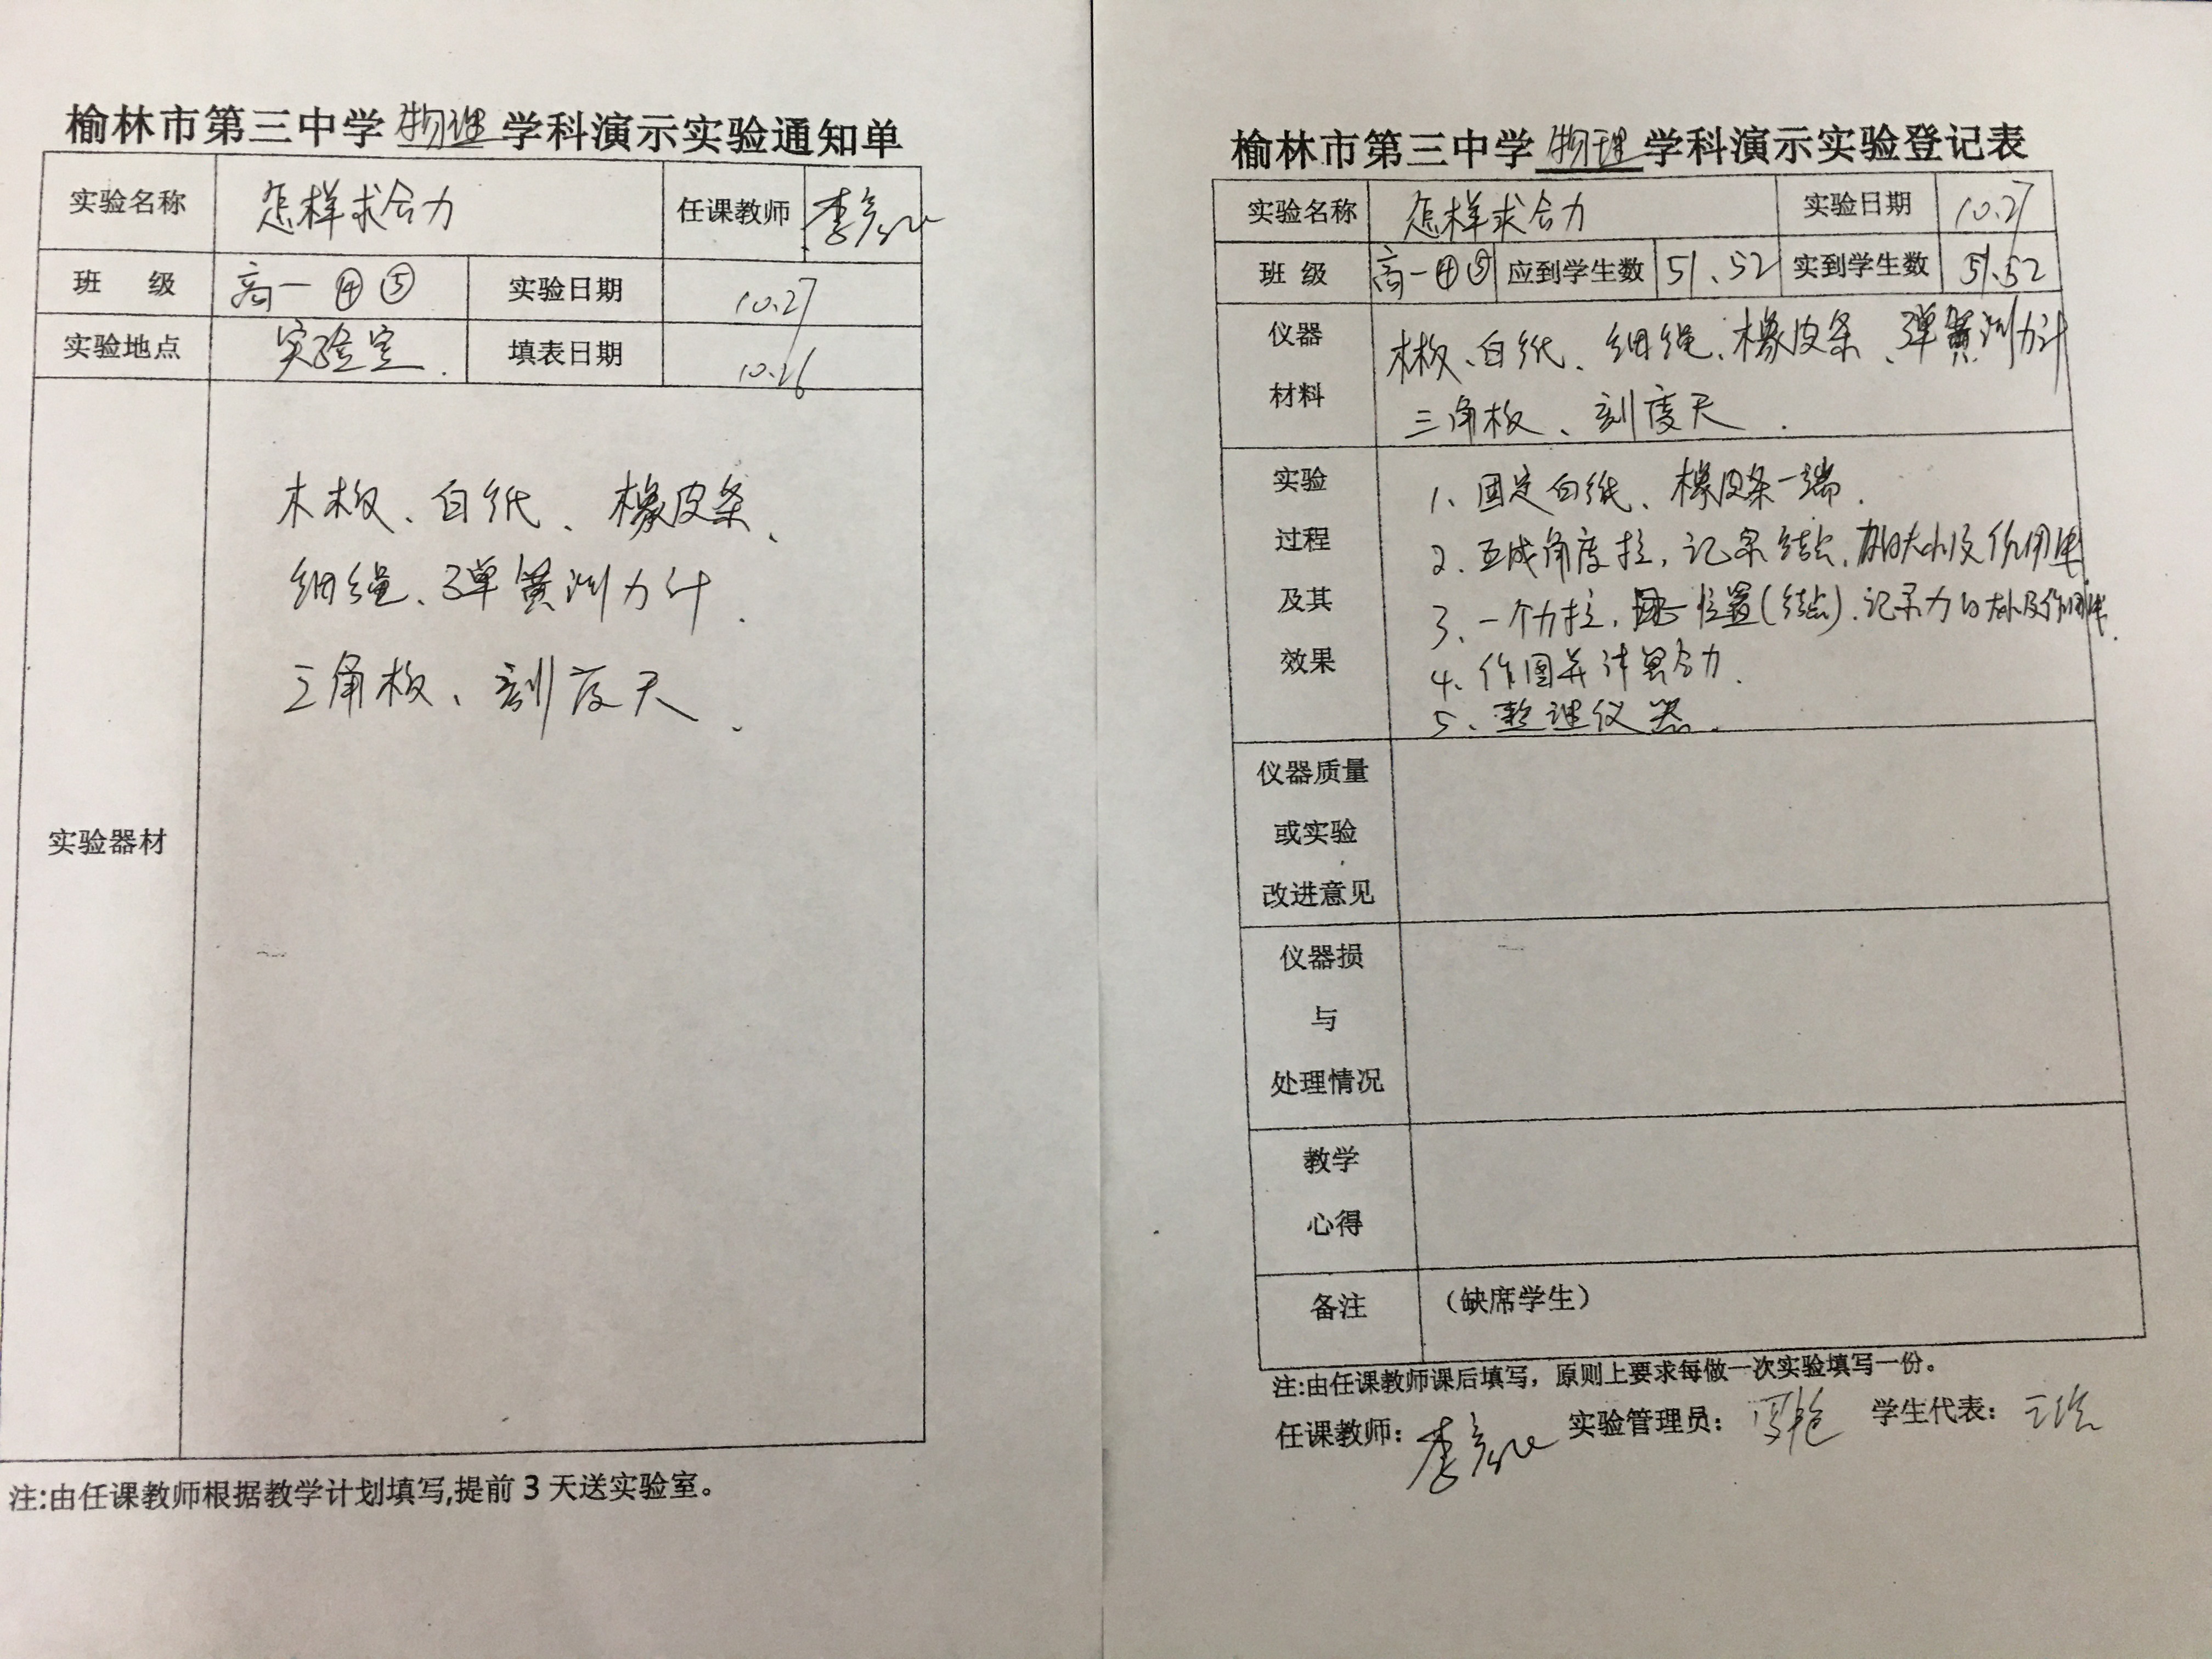 榆林市第三中学物理学科演示实验通知单
实验名称 怎样求合力 任课教师
班 级 高一 ④ ⑤ 实验日期 10.27
实验地点 实验室. 填表日期 10.26
实验器材
木板、白纸、橡皮条、
细绳、弹簧测力计.
三角板、刻度尺.
注:由任课教师根据教学计划填写,提前 3 天送实验室。
榆林市第三中学物理学科演示实验登记表
实验名称 怎样求合力 实验日期 10.27
班 级 高一④⑤ 应到学生数 51、52 实到学生数 51.52
仪器
材料
木板、白纸、细绳、橡皮条、弹簧测力计
三角板、刻度尺.
实验
过程
及其
效果
1、固定白纸、橡皮条一端.
2. 互成角度拉, 记录结点, 力的大小及作用线.
3、一个力拉, 同一位置(结点). 记录力的大小及作用线.
4、作图并计算合力.
5、整理仪器.
仪器质量
或实验
改进意见
仪器损
与
处理情况
教学
心得
备注 （缺席学生）
注:由任课教师课后填写，原则上要求每做一次实验填写一份。
任课教师: 实验管理员: 学生代表: